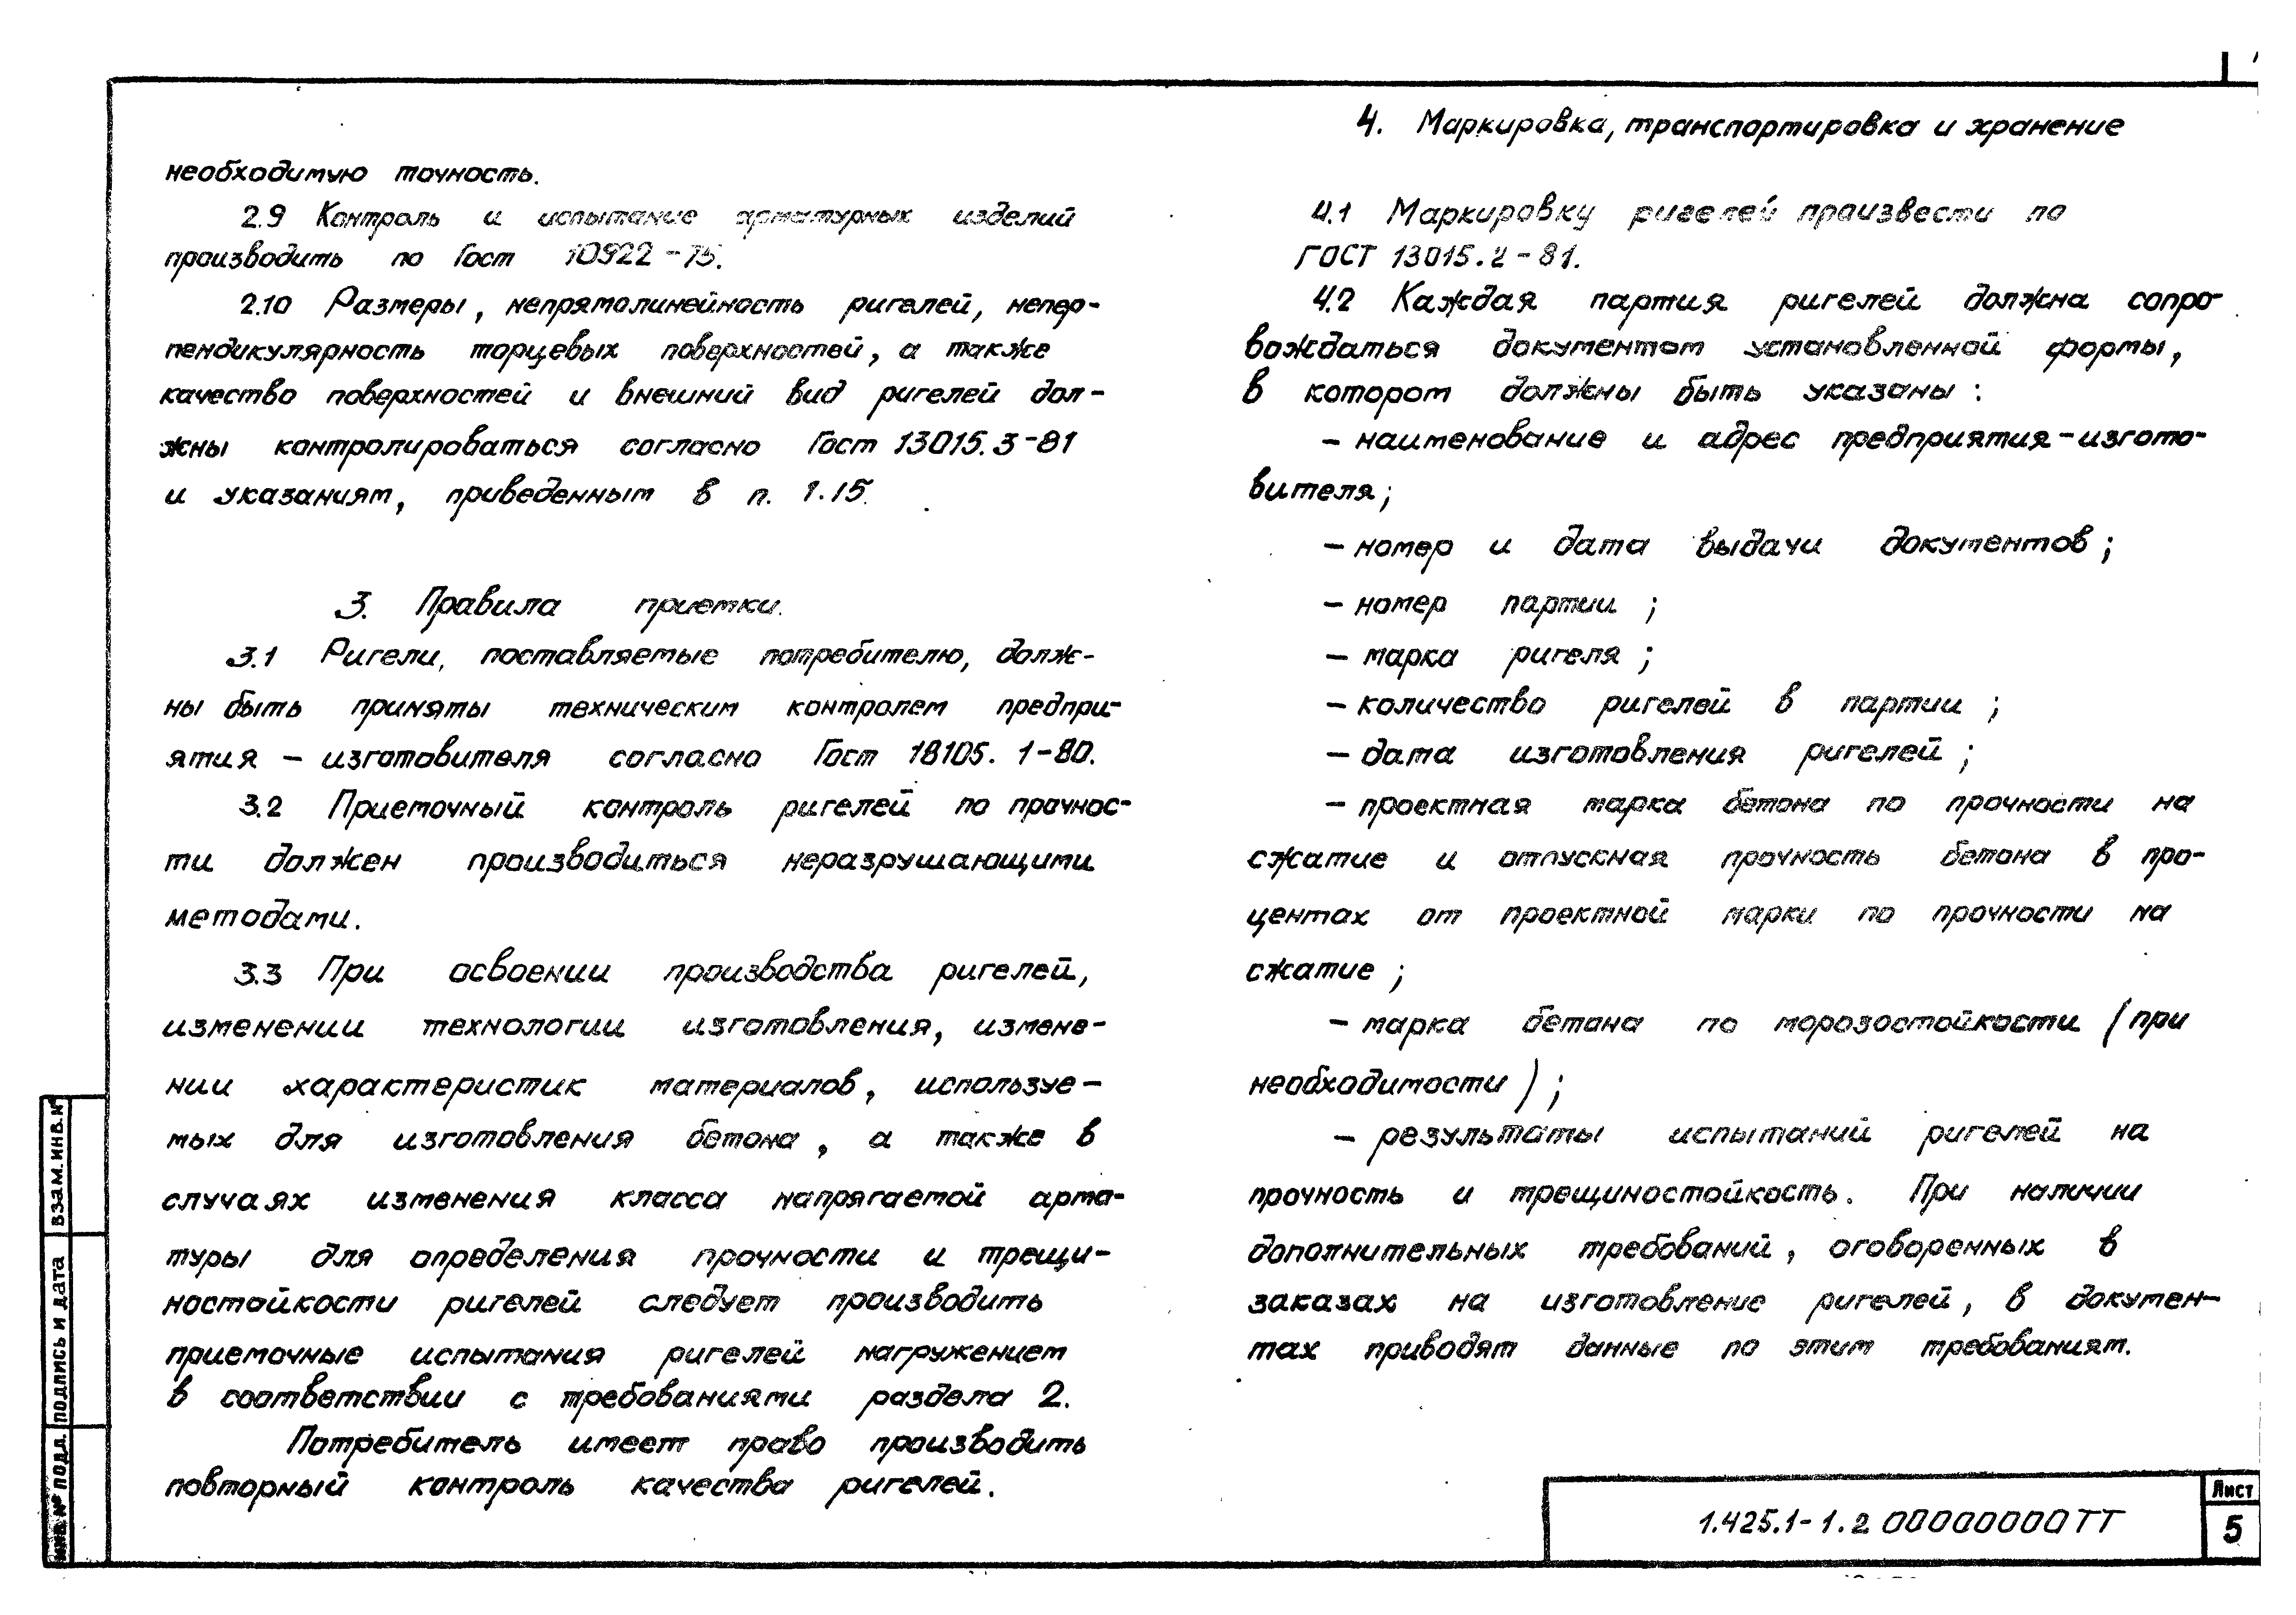 необходимую точность.
2.9 Контроль и испытание арматурных изделий
производить по Гост 10922-75.
2.10 Размеры, непрямолинейность ригелей, непер-
пендикулярность торцевых поверхностей, а также
качество поверхностей и внешний вид ригелей дол-
жны контролироваться согласно Гост 13015.3-81
и указаниям, приведенным в п. 1.15.
3. Правила приемки.
3.1 Ригели, поставляемые потребителю, долж-
ны быть приняты техническим контролем предпри-
ятия - изготовителя согласно Гост 18105. 1-80.
3.2 Приемочный контроль ригелей по прочнос-
ти должен производиться неразрушающими
методами.
3.3 При освоении производства ригелей,
изменении технологии изготовления, измене-
нии характеристик материалов, используе-
мых для изготовления бетона, а также в
случаях изменения класса напрягаемой арма-
туры для определения прочности и трещи-
ностойкости ригелей следует производить
приемочные испытания ригелей нагружением
в соответствии с требованиями раздела 2.
Потребитель имеет право производить
повторный контроль качества ригелей.
4. Маркировка, транспортировка и хранение
4.1 Маркировку ригелей произвести по
ГОСТ 13015.2-81.
4.2 Каждая партия ригелей должна сопро-
вождаться документом установленной формы,
в котором должны быть указаны:
- наименование и адрес предприятия-изгото-
вителя;
- номер и дата выдачи документов;
- номер партии;
- марка ригеля;
- количество ригелей в партии;
- дата изготовления ригелей;
- проектная марка бетона по прочности на
сжатие и отпускная прочность бетона в про-
центах от проектной марки по прочности на
сжатие;
- марка бетона по морозостойкости (при
необходимости);
- результаты испытаний ригелей на
прочность и трещиностойкость. При наличии
дополнительных требований, оговоренных в
заказах на изготовление ригелей, в докумен-
тах приводят данные по этим требованиям.
1.425.1-1.2 00000000ТТ
Лист
5
Взам. инв. №
Подпись и дата
Инв. № подл.